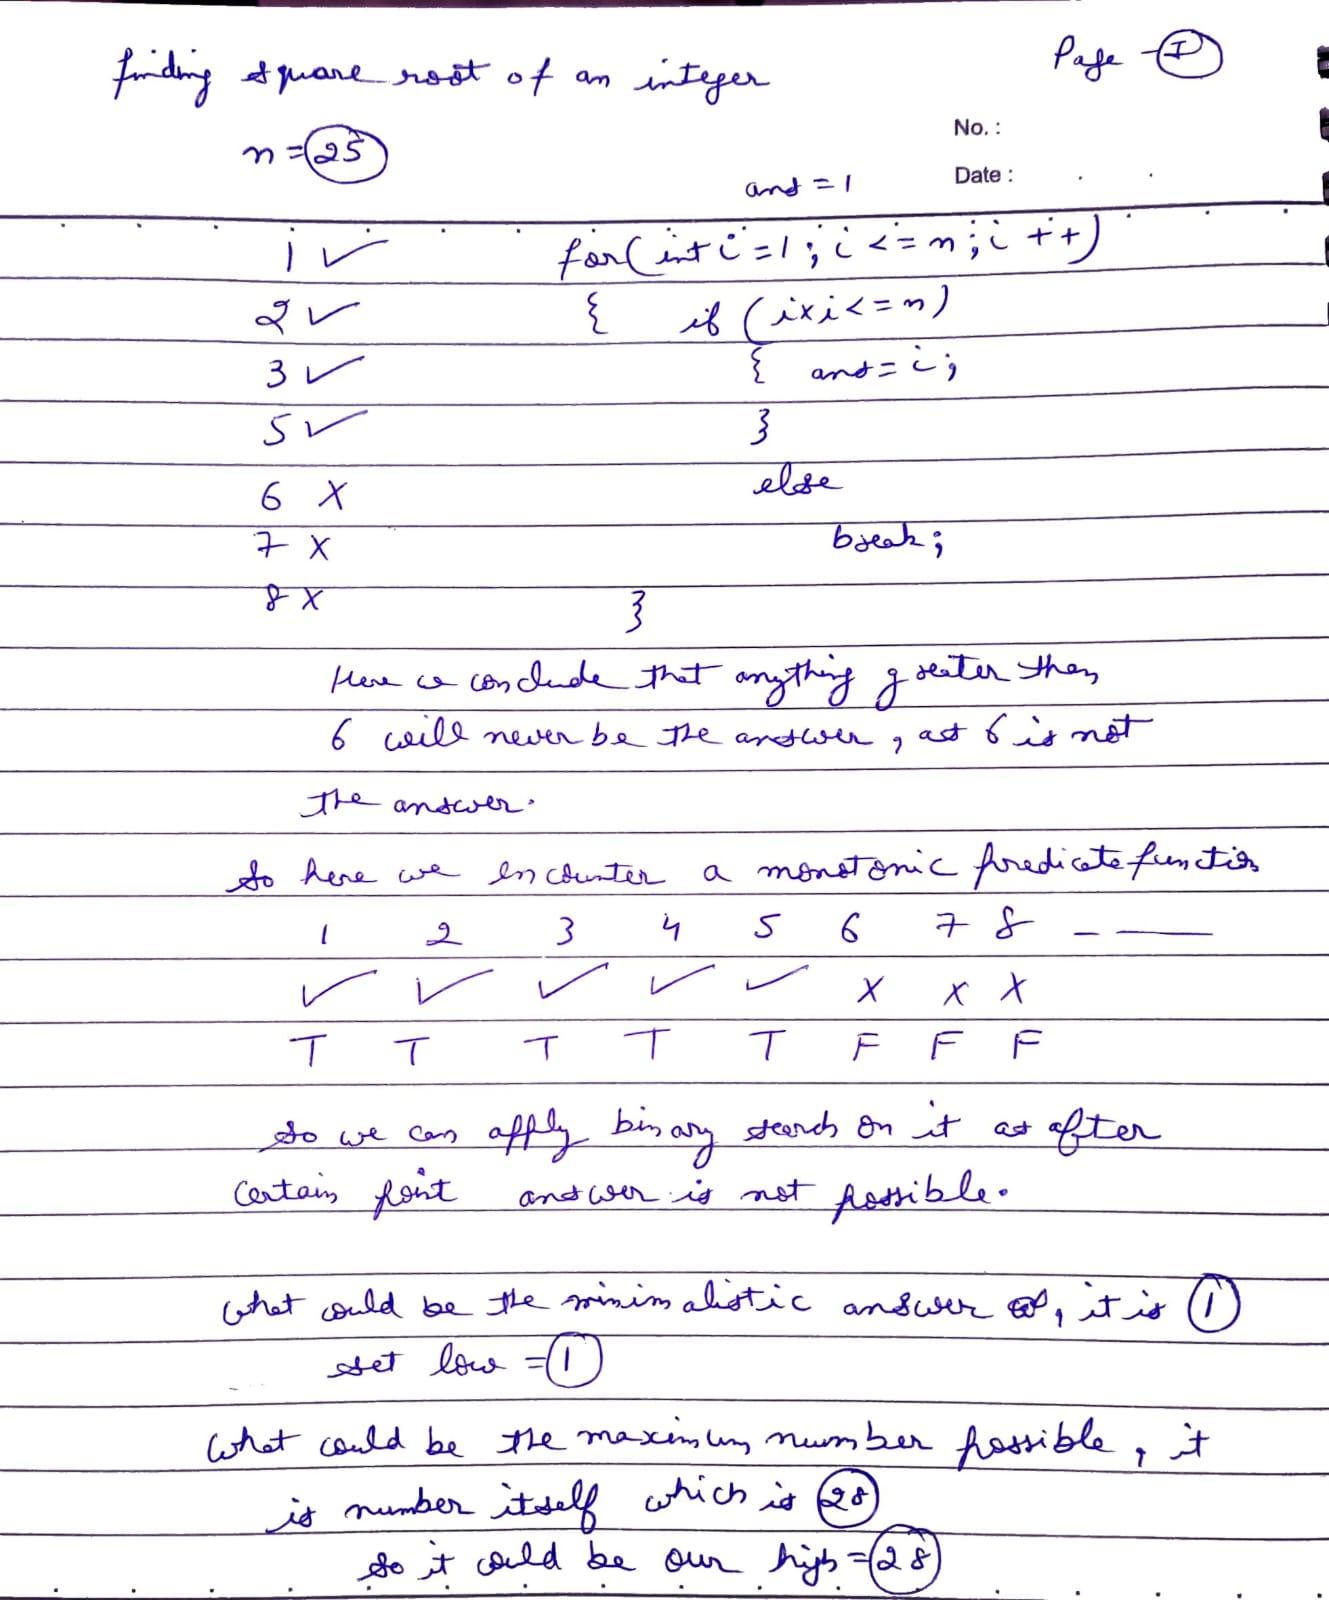 finding square root of an integer
Page - I
n = 25
No. :
Date :
ans = 1
1 ✓ for(int i=1; i<=n; i++)
2 ✓ { if (i×i<=n)
3 ✓ { ans = i;
5 ✓ }
6 X else
7 X break;
8 X }
Here we conclude that anything greater then
6 will never be the answer, as 6 is not
the answer.
So here we encounter a monotonic predicate function
1 2 3 4 5 6 7 8 - —
✓ ✓ ✓ ✓ ✓ X X X
T T T T T F F F
So we can apply binary search on it as after
certain point answer is not possible.
What could be the minimalistic answer, it is 1
set low = 1
What could be the maximum number possible, it
is number itself which is 28
So it could be our high = 28